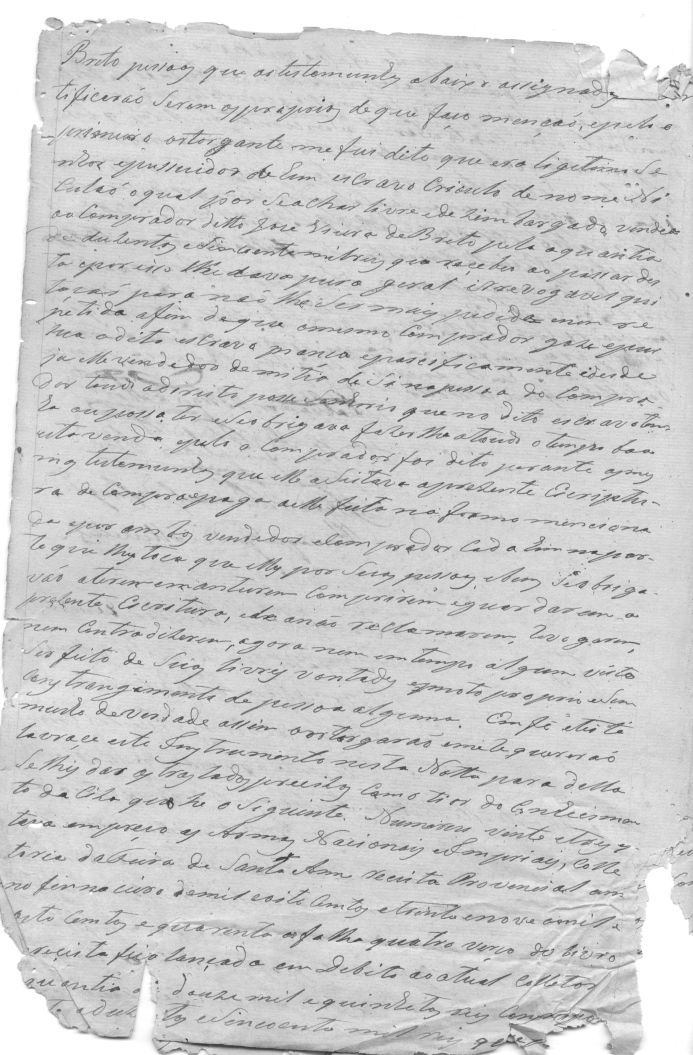 Brito pessoas que as testemunhas abaixo assignadas
tificarão serem os proprios de que faço menção, e pelo
primeiro outorgante me foi dito que era ligitimo Se
nhor e possuidor de hum escravo Crioulo de nome Ni
culaó o qual por se achar livre e dezimbargado, vendeo
ao Comprador ditto José Vieira de Brito pela a quantia
de duzentos e sincoenta mil reis que recebeu ao passar des
ta e por isso lhe dava pura geral e irrevogavel qui
tacaó para naó lhe ser mais pedida nem re
petida a fim de que o mesmo Comprador goze e pus
sua o dito escravo mança e pacificamente e desde
ja elle vendedor demitio de Si na pessoa do Compra
dor todo a direito posse que no dito escravo tem
ha ou possa ter e se obrigava fazer lhe a todo o tempo boa
esta venda, e pelo o Comprador foi dito perante as mes
mas testemunhas que elle aseitava a prezente Escriptu-
ra de Compra e paga a elle feita na forma menciona
da e por ambos vendedor e Comprador Cada hum na par-
te que lhes toca que elles por Suas pessoas e bens se obriga-
vão a terem e manterem Comprirem e guardarem a
prezente Escritura, e a não reclamarem, revogarem,
nem Contradizerem, agora nem em tempo algum visto
Ser feito de Suas livres vontades e moto proprio e Sem
Constrangimento de pessoa alguma. Em fé e teste
munho de verdade assim outorgarão e me requererão
lavrace este Instrumento nesta Notta para della
Se lhes dar os treslados precizos Com o tior do Conhecimen
to da Ciza que he o Siguinte. Numero vinte e tres
tava empreço as Armas Nacionaes e Impriaes, Colle
toria da Feira de Santa Anna receita Provincial an
no finnaceiro de mil e oito Centos e trinta e nove a mil e
oito Centos e quarenta a folha quatro verço do livro
receita fica lançada em Debito ao atual Colletor
quantia de douze mil e quinhentos reis
to a duzentos e Sincoenta mil reis que